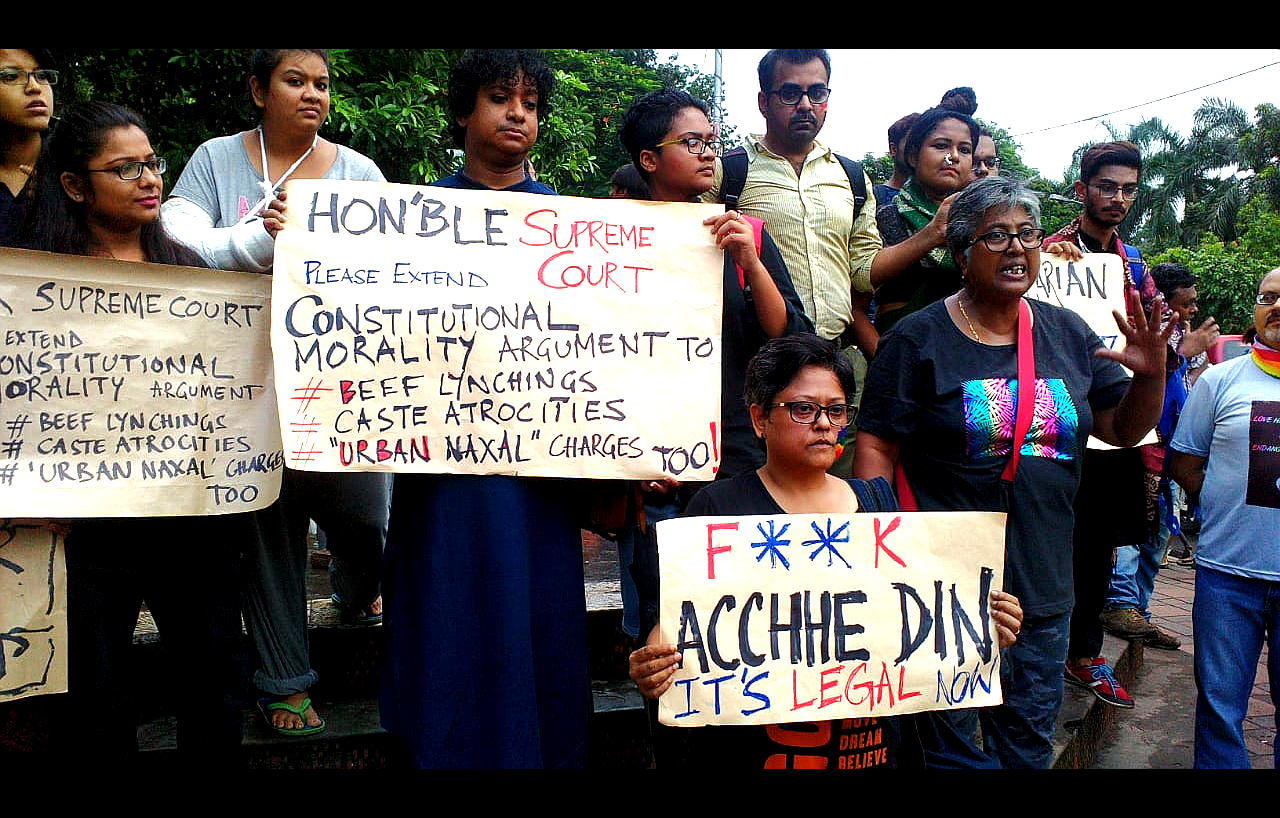 SUPREME COURT
EXTEND
CONSTITUTIONAL
MORALITY ARGUMENT
# BEEF LYNCHINGS
# CASTE ATROCITIES
# 'URBAN NAXAL' CHARGES
TOO
HON'BLE SUPREME
COURT
PLEASE EXTEND
CONSTITUTIONAL
MORALITY ARGUMENT TO
# BEEF LYNCHINGS
# CASTE ATROCITIES
# "URBAN NAXAL" CHARGES TOO!
F**K
ACCHHE DIN
IT'S LEGAL NOW
MOVE
DREAM
BELIEVE
ARIAN
LOVE